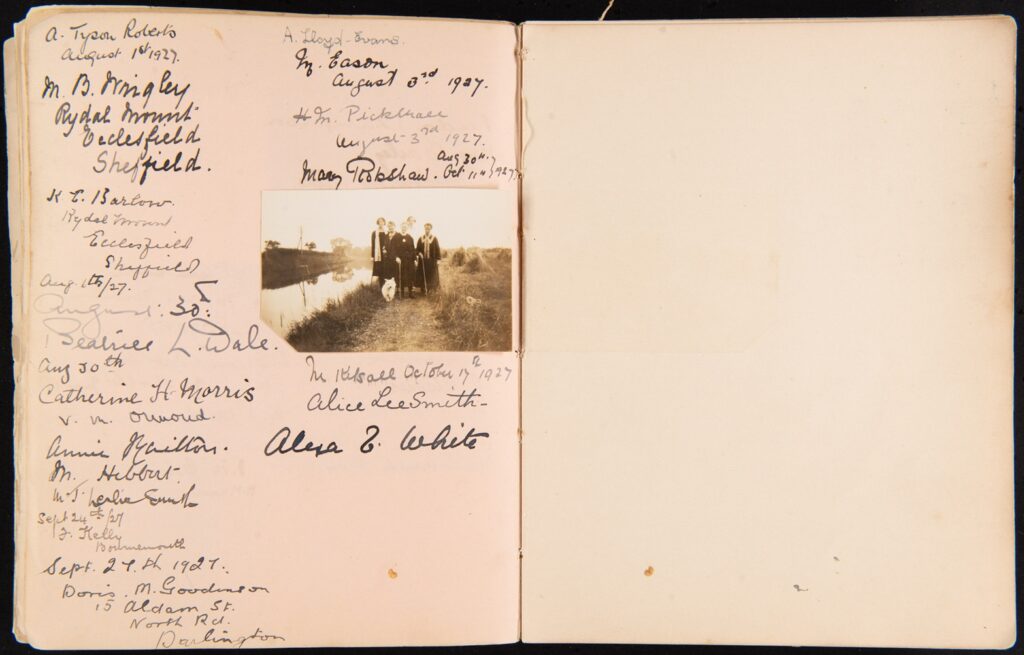 A. Tyson Roberts
August 1st 1927.
M. B. Wrigley
Rydal Mount
Ecclesfield
Sheffield.
K E. Barlow.
Rydal Mount
Ecclesfield
Sheffield
Aug 1th/27.
August: 30.
Beatrice L. Wale.
Aug 30th
Catherine H. Morris
V. M. Ormond.
Annie
M. Hibbert.
M. J. Leslie Smith
Sept 24th/27
F. Kelly
Bournemouth
Sept. 27.th 1927.
Doris. M. Goodinson
15 Aldam St.
North Rd.
Darlington
A. Lloyd-Evans.
M. Eason
August 3rd 1927.
H M. Pickthall
August 3rd 1927.
Aug 30th.
Mary Rokshaw. Oct 11th 1927
M Kelsall October 17th 1927
Alice Lee Smith
Alexa E. White